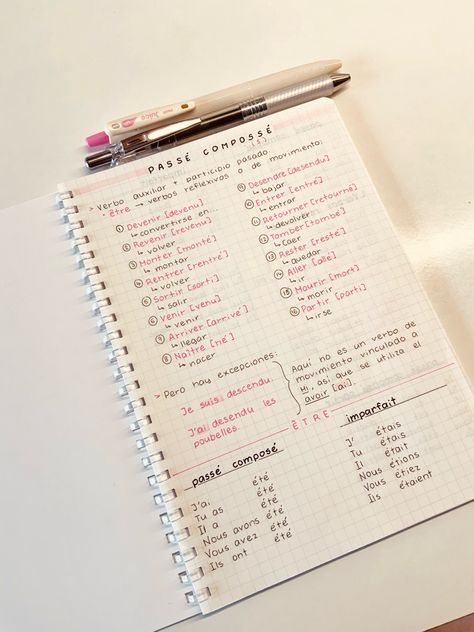 Juice
PASSÉ COMPOSSÉ
> Verbo auxiliar + participio pasado.
· être → verbos reflexivos o de movimiento:
① Devenir [devenu]
↳ convertirse en...
② Revenir [revenu]
↳ volver
③ Monter [monté]
↳ montar
④ Rentrer [rentré]
↳ volver
⑤ Sortir [sorti]
↳ salir
⑥ Venir [venu]
↳ venir
⑦ Arriver [arrivé]
↳ llegar
⑧ Naître [né]
↳ nacer
Desendre [desendu]
↳ bajar
⑩ Entrer [entré]
↳ entrar
⑪ Retourner [retourné]
↳ devolver
⑫ Tomber [tombé]
↳ caer
⑬ Rester [resté]
↳ quedar
⑭ Aller [allé]
↳ ir
⑮ Mourir [mort]
↳ morir
⑯ Partir [parti]
↳ irse
> Pero hay excepciones:
Je suis descendu.
J'ai desendu les
poubelles.
Aquí no es un verbo de
movimiento vinculado a
mi, así que se utiliza el
avoir [ai].
ÊTRE
passé composé
J'ai été
Tu as été
Il a été
Nous avons été
Vous avez été
Ils ont été
imparfait
J' étais
Tu étais
Il était
Nous étions
Vous étiez
Ils étaient